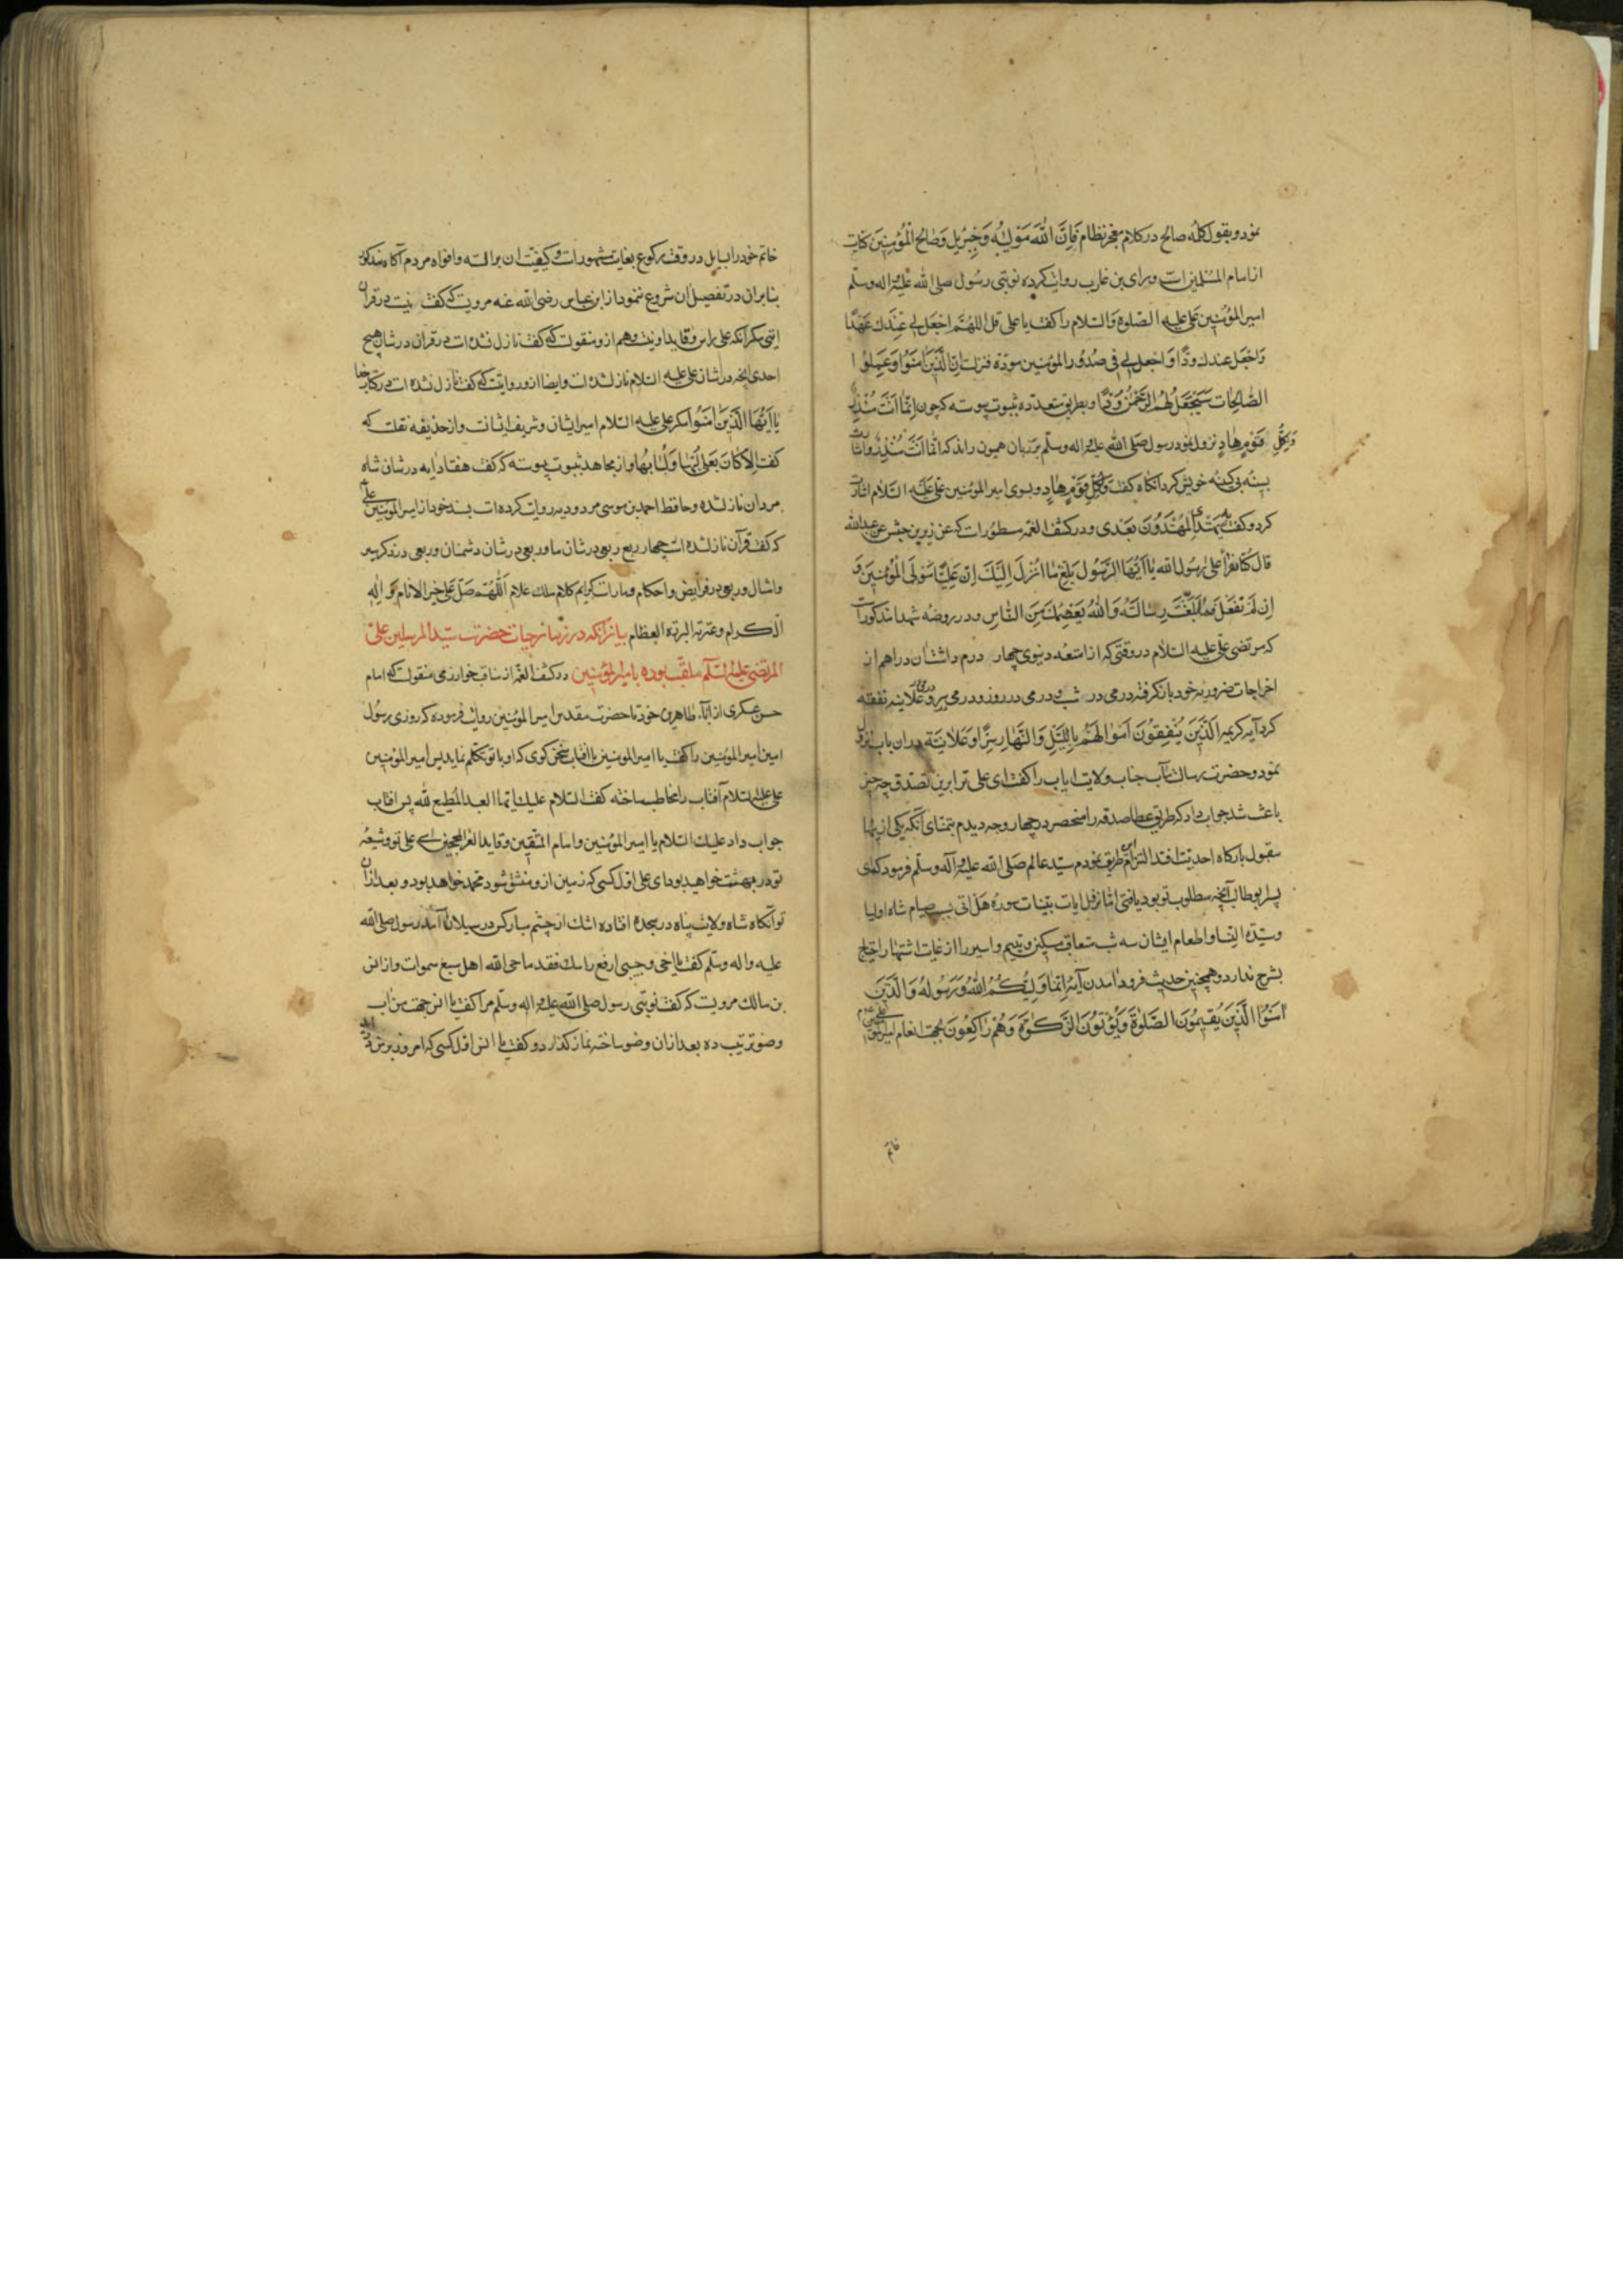 نمود و بقول کلمهٔ صالح در کلام معجز نظام فَاِنَّ اللهَ هُوَ مَوْلیٰهُ وَجِبْرِیل وَصَالِحُ الْمُؤْمِنِینَ کنایت
از امام المسلمین است و برای بن عازب روایت کرده نوبتی رسول صلی الله علیه واله وسلّم
امیر المؤمنین علی علیه الصلوة والسلام را کفت یا علی قل اللهُمَّ اجْعَل لِی عِنْدَكَ عَهْدًا
وَاجْعَل عندك ودًّا وَاجْعَل لِی فِی صُدُور المؤمنین مودّة فنزلت اِنَّ الَّذِینَ اٰمَنُوا وَعَمِلُوا
الصَّالِحَات سَیَجْعَلُ لَهُمُ الرَّحْمٰنُ وُدًّا و بطریق متعدّده بثبوت پیوسته که چون اِنَّمَا اَنْتَ مُنْذِرٌ
وَلِکُلِّ قَوْمٍ هَادٍ نزول نمود رسول صلی الله علیه واله وسلّم بر زبان همیون راند که انّما اَنْتَ مُنْذِرٌ و اشارت
بسینه بی کینه خویش کرد انکاه کفت وَلِکُلِّ قَوْمٍ هَادٍ و بسوی امیر المؤمنین علی علیه السلام اشارت
کرد و کفت بك یهتدی الْمُهْتَدُونَ بَعْدِی و در کشف الغمه مسطورات که عن زر بن حبیش عن عبدالله
قال کنّا نقرأ علی رسول الله یا اَیُّهَا الرَّسُول بَلِّغ مَا اُنْزِلَ اِلَیْكَ اِنَّ عَلِیًّا مَوْلَی الْمُؤْمِنِینَ وَ
اِن لَمْ تَفْعَل فَمَا بَلَّغْتَ رِسَالَتَهُ وَاللهُ یَعْصِمُكَ مِنَ النَّاسِ و در روضه شهدا مذکورات
که مرتضی علی علیه السلام در وقتی که از امتعه دنیوی چهار درم داشتان دراهم از
اخراجات ضروریه خود باز کرفته درمی در شب و درمی در روز و درمی بسر و درمی علانیه نفقه
کرد آیه کریمه اَلَّذِینَ یُنْفِقُونَ اَمْوَالَهُمْ بِاللَّیْلِ وَالنَّهَارِ سِرًّا وَعَلَانِیَة در ان باب نزول
نمود و حضرت رسالت مآب جناب ولایت ایاب را کفت ای علی ترا برین تصدق چه چیز
باعث شد جواب داد که طریق عطا صدقه را منحصر در چهار وجه دیدم بتمنای آنکه یکی از ینها
مقبول بارکاه احدیت افتد التزام این طریق نمودم سیّد عالم صلی الله علیه واله وسلّم فرمود که ای
پسر ابوطالب آنچه مطلوب تو بود یافتی اما نزول ایات بینات سوره هَلْ اَتی بسبب صیام شاه اولیا
وسیّدة النسا و اطعام ایشان سه شب متعاقب مسکین و یتیم و اسیر را از غایت اشتهار احتیاج
بشرح ندارد و همچنین حدیث فرود امدن آیهٔ اِنَّمَا وَلِیُّکُمُ اللهُ وَرَسُولُهُ وَالَّذِینَ
اٰمَنُوا الَّذِینَ یُقِیمُونَ الصَّلٰوةَ وَیُؤْتُونَ الزَّکٰوةَ وَهُمْ رَاکِعُونَ بجهت انعام امیر المؤمنین علی
خاتم
خاتم خود را بسایل در وقت رکوع بغایت مشهورات و کیفیت ان بر السنه و افواه مردم آکاه مذکور
بنابران در تفصیل ان شروع ننمود از ابن عباس رضی الله عنه مرویت که کفت نیست در قران
ایتی مکر آنکه علی راس و قاید اونیت و هم از و منقولت که کفت نازل نشده ات در قران در شان هیچ
احدی انچه در شان علی علیه السلام نازل شده ات و ایضا از و روایتت که کفت نازل نشده ات در کتاب خدا
یَا اَیُّهَا الَّذِینَ اٰمَنُوا مکر علی علیه السلام امیر ایشان و شریف ایشانت و از حذیفه نقلت که
کفت اِلا کَانَ لعلی لُبُّهَا وَلُبَابُهَا و از مجاهد بثبوت پیوسته که کفت هفتاد ایه در شان شاه
مردان نازل شده و حافظ احمد بن موسی مردودیه روایت کرده ات بسند خود از امیر المؤمنین علی
که کفت قرآن نازل شده ات چهار ربع ربعی در شان ما و ربعی در شان دشمنان و ربعی در ذکر سیر
و امثال و ربعی در فرایض و احکام و مارات کرایم کلام ملك علام اَللّهُمَّ صَلِّ عَلَی خیر الانام وَ اٰلِهِ
الکرام و عترته البررة العظام بیان آنکه در زمان حیات حضرت سیّد المرسلین علی
المرتضی علیه السلام ملقب بوده بامیر المؤمنین در کشف الغمه از مناقب خوارزمی منقولت که امام
حسن عسکری از آبآء طاهرین خود تا حضرت مقدس امیر المؤمنین روایت فرموده که روزی رسول
امین امیر المؤمنین را کفت یا امیر المومنین با افتاب سخن کوی که او با تو تکلّم نماید پس امیر المؤمنین
علی علیه السلام آفتاب را مخاطب ساخته کفت السلام علیك ایّها العبد المطیع لله پس افتاب
جواب داد علیك السلام یا امیر المؤمنین و امام المتّقین و قاید الغر المحجلین ای علی تو و شیعهٔ
تو در بهشت خواهید بود ای علی اول کسی که زمین از و منشق شود محمد خواهد بود و بعد ازان
تو آنکاه شاه ولایت پناه در سجده افتاده اشك از چشم مبارکش در سیلان آمد رسول صلی الله
علیه واله وسلّم کفت یا اخی و حبیبی ارفع راسك فقد باهی الله اهل سبع سموات و از انس
بن مالك مرویت که کفت نوبتی رسول صلی الله علیه واله وسلّم مرا کفت یا انس جهت من اب
وضو ترتیب ده بعد ازان وضو ساخته نماز کذارد و کفت یا انس اول کسی که امروز برمن در اید